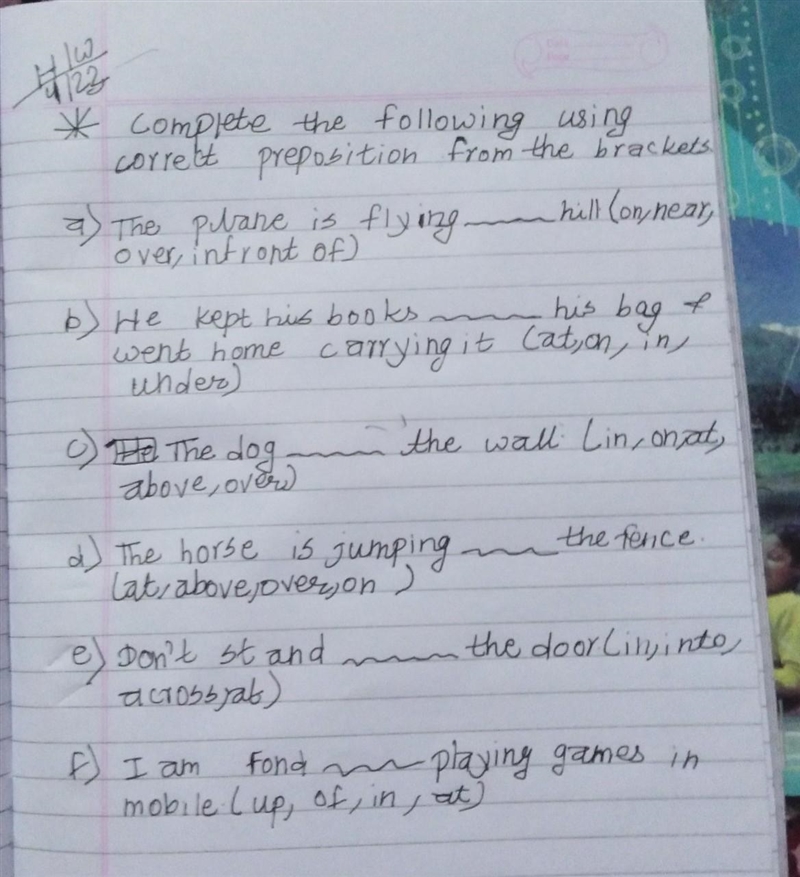 H/W
4/23
* Complete the following using
correct preposition from the brackets
a) The plane is flying ____ hill (on, near,
over, infront of)
b) He kept his books ____ his bag &
went home carrying it (at, on, in,
under)
c) The dog ____ the wall (in, on, at,
above, over)
d) The horse is jumping ____ the fence.
(at, above, over, on )
e) Don't stand ____ the door (in, into,
across, at)
f) I am fond ____ playing games in
mobile (up, of, in, at)